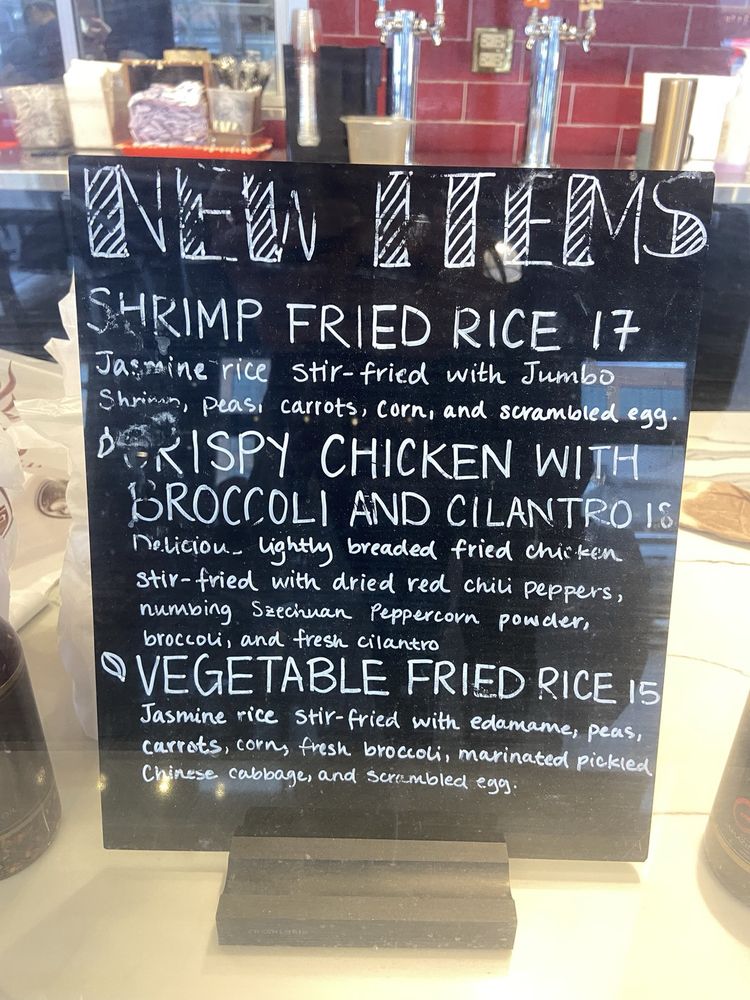 NEW ITEMS
SHRIMP FRIED RICE 17
Jasmine rice stir-fried with Jumbo
Shrimp, peas, carrots, corn, and scrambled egg.
CRISPY CHICKEN WITH
BROCCOLI AND CILANTRO 18
Delicious lightly breaded fried chicken
stir-fried with dried red chili peppers,
numbing Szechuan Peppercorn powder,
broccoli, and fresh cilantro
VEGETABLE FRIED RICE 15
Jasmine rice stir-fried with edamame, peas,
carrots, corn, fresh broccoli, marinated pickled
Chinese cabbage, and scrambled egg.